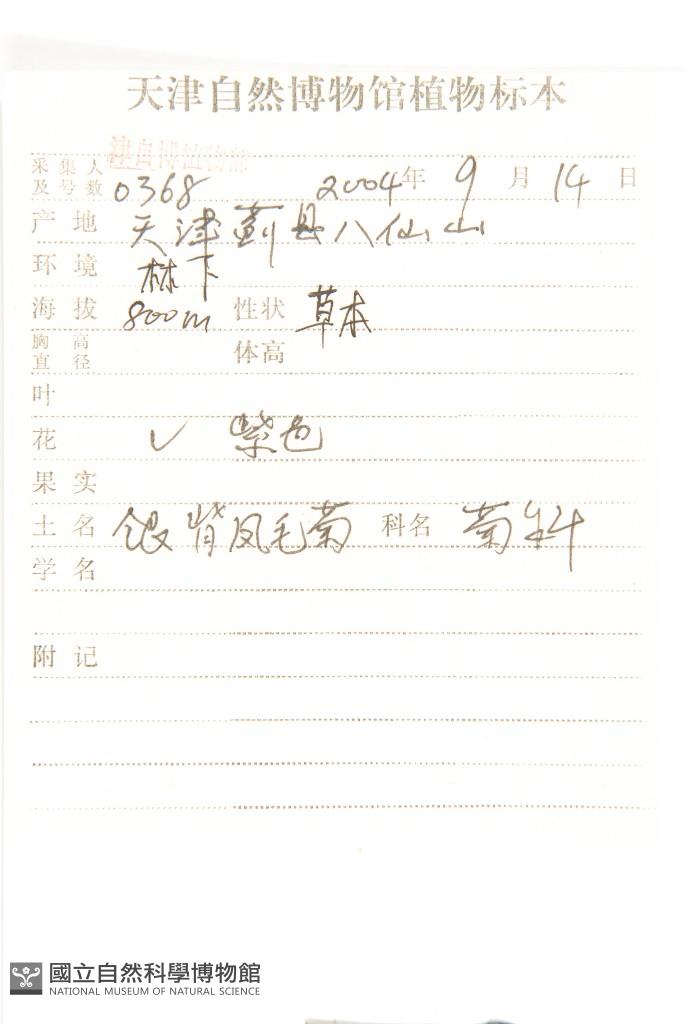 天津自然博物馆植物标本
采集人
及号数 0368 2004年 9 月 14 日
产地 天津蓟县八仙山
环境 林下
海拔 800m 性状 草本
胸高
直径 体高
叶
花 ✓ 紫色
果实
土名 银背凤毛菊 科名 菊科
学名
附记
國立自然科學博物館
NATIONAL MUSEUM OF NATURAL SCIENCE